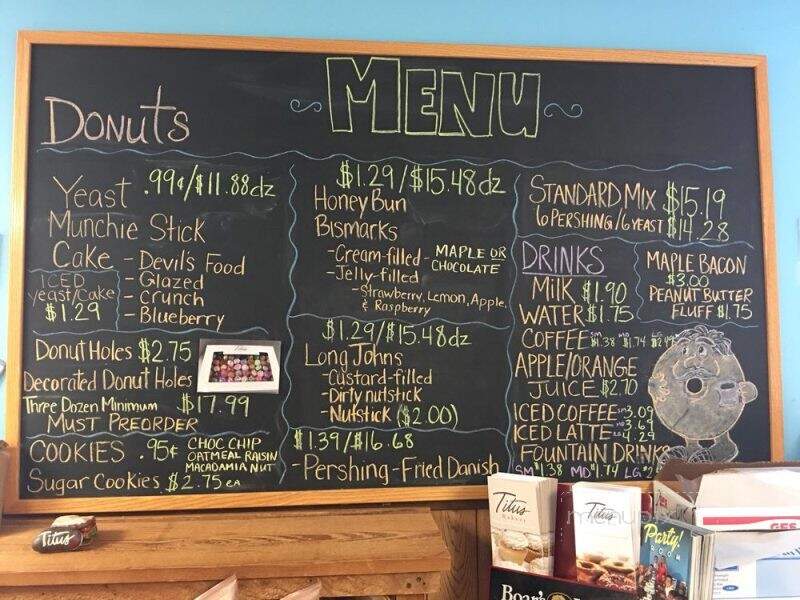 MENU
DONUTS
Yeast .99¢/$11.88dz
Munchie Stick
Cake - Devil's Food
- Glazed
- Crunch
- Blueberry
ICED
Yeast/Cake
$1.29
Donut Holes $2.75
Decorated Donut Holes
Three Dozen Minimum $17.99
MUST PREORDER
COOKIES .95¢ CHOC CHIP
OATMEAL RAISIN
MACADAMIA NUT
Sugar Cookies $2.75 EA
$1.29/$15.48dz
Honey Bun
Bismarks
-Cream-filled - MAPLE OR
CHOCOLATE
-Jelly-filled
-Strawberry, Lemon, Apple,
& Raspberry
$1.29/$15.48dz
Long Johns
-Custard-filled
-Dirty nutstick
-Nutstick ($2.00)
$1.39/$16.68
-Pershing-Fried Danish
STANDARD MIX $15.19
6 PERSHING/6 YEAST $14.28
DRINKS
MILK $1.90
WATER $1.75
COFFEE SM $1.38 MD $1.74 LG
APPLE/ORANGE
JUICE $2.70
ICED COFFEE SM 3.09
ICED LATTE MD 3.69
LG 4.29
FOUNTAIN DRINKS
SM $1.38 MD $1.74 LG $2
MAPLE BACON
$3.00
PEANUT BUTTER
FLUFF $1.75
Titus
Titus
Bakery
Titus
Party!
BOOK
Boar's
menu